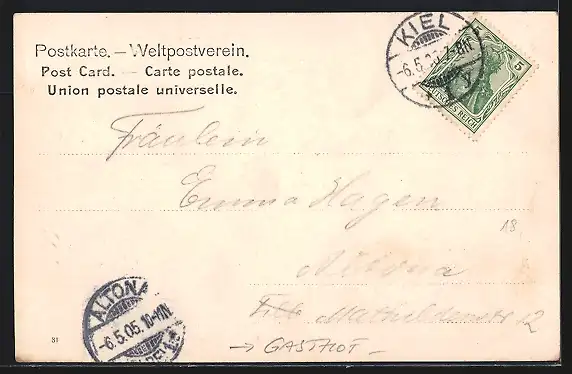 Postkarte. — Weltpostverein.
Post Card. — Carte postale.
Union postale universelle.
KIEL
-6.5.05. 7-8N
5
DEUTSCHES REICH
Fräulein
Emma Hagen
18
Altona
Mathildenstr 12
ALTONA
-6.5.05. 10-11N
31
→ GASTHOF -